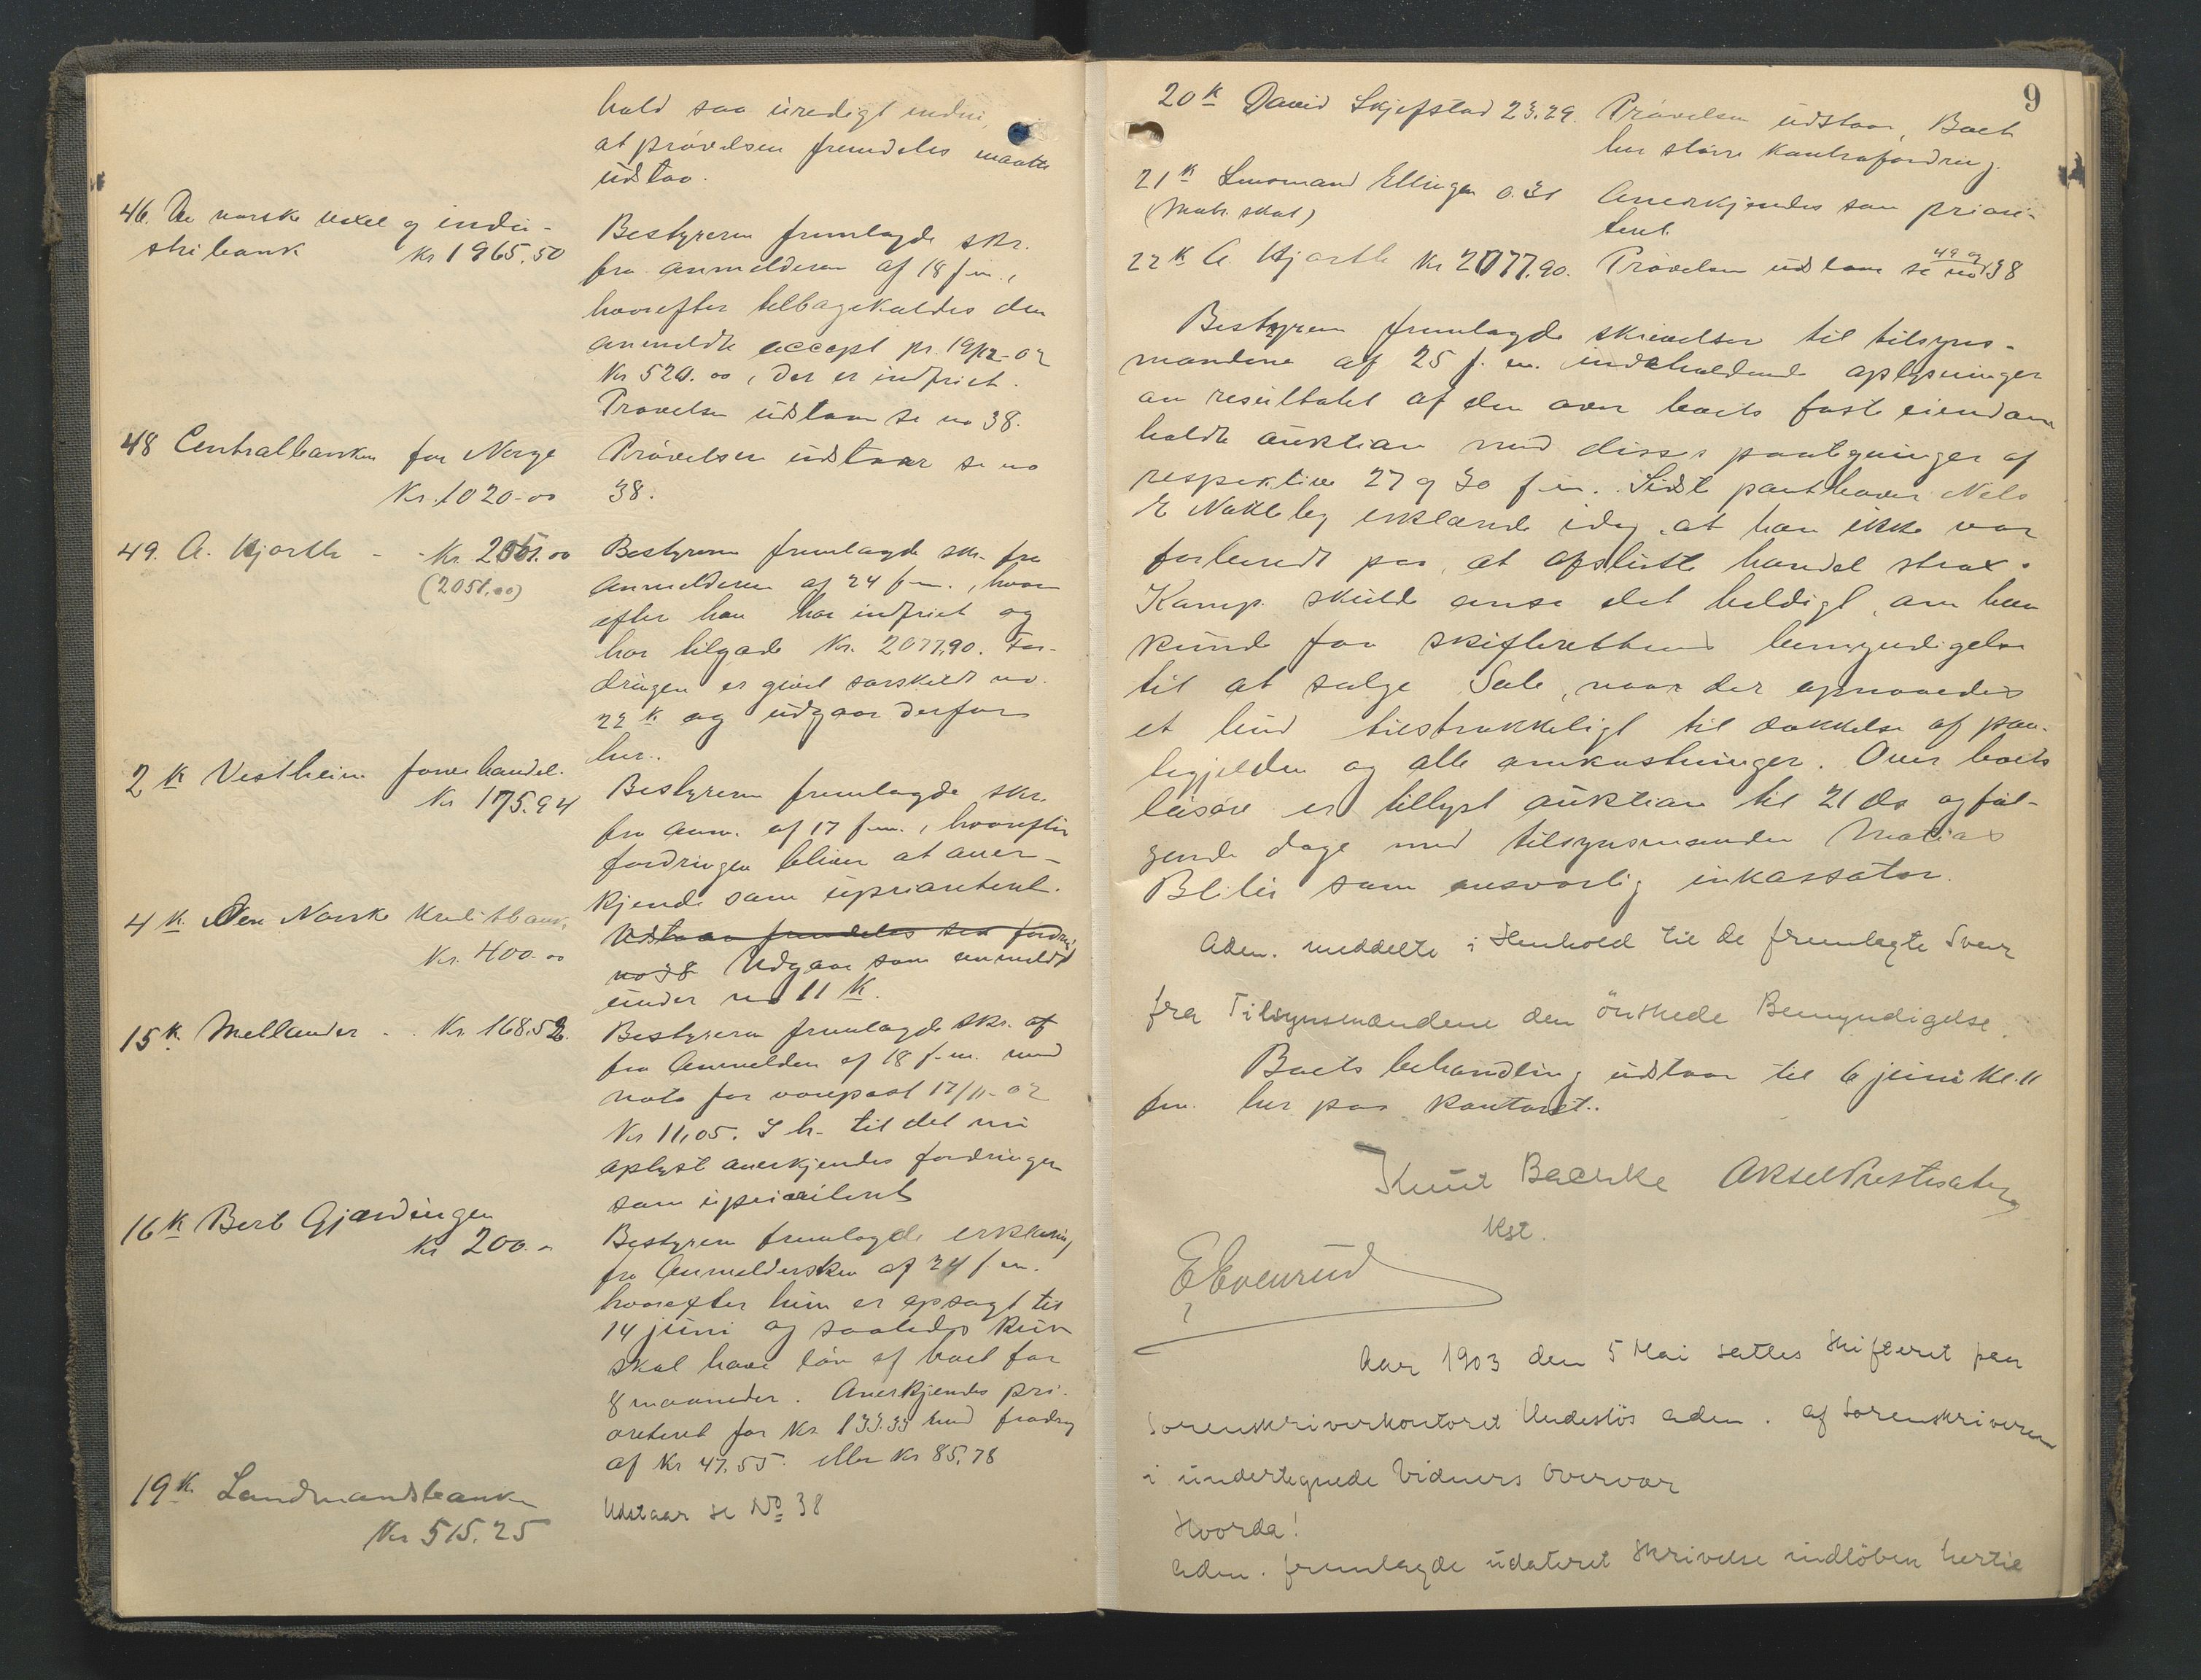 hold saa uredigt endnu,
at prøvelsen fremdeles maatte
udstaa.
46. De norske vexel og indu-
stribank Kr 1965.50
Bestyreren fremlagde skr.
fra anmelderen af 18 f.m.,
hvorefter tilbagekaldes den
anmeldte accept pr. 19/12-02
Kr 520.00, der er indfriet.
Prøvelsen udstaar se no 38.
48 Centralbanken for Norge
Kr. 1020-00
Prøvelsen udstaar se no
38.
49. A. Hjorth - - Kr. 2051.00
(2051.00)
Bestyreren fremlagde skr. fra
Anmelderen af 24 f.m., hvor
efter han har indfriet og
har tilgode Kr. 2077,90. For-
dringen er givet særskildt no.
22 K og udgaar derfor
her..
2 K Vestheim farvehandel.
Kr 175.94
Bestyreren fremlagde skr.
fra Anm. af 17 f.m., hvorefter
fordringen bliver at aner-
kjende som uprioriteret.
4 K. Den Norske Kreditbank,
Kr. 400.00
Udstaar fremdeles se fordr.
no 38 Udgaar som anmeldt
under no 11 K.
15 K. Mellander - . Kr. 168.52.
Bestyreren fremlagde skr. af
fra Anmelden af 18 f.m. med
nota for varepost 17/11-02
Kr 11,05. I h. til det nu
oplyst anerkjendes fordringen
som uprioriteret
16 K Berit Gjærdingen
Kr 200.-
Bestyreren fremlagde erklæring
fra Anmeldersken af 24 f.m.
hvorefter hun er opsagt til
14 juni og saaledes kun
skal have løn af boet for
8 maaneder. Anerkjendes pri-
oriteret for Kr. 133.33 med fradrag
af Kr 47.55. eller Kr 85.78
19 K. Landmandsbanken
Kr 515.25
Udstaar se No 38
9
20 K David Skjefstad 23.29. Prøvelsen udstaar, Boet
har større kontrafordring.
21 K Lensmand Ellingen 0.31 Anerkjendes som priori-
(Matr. skat) teret.
22 K A. Hjorth Kr 2077.90. Prøvelsen udstaar se no 49 og 38
Bestyreren fremlagde skrivelser til tilsyns-
mændene af 25 f.m. indeholdende oplysninger
om resultatet af den over boets faste eiendom
holdte auktion med disses paategninger af
respektive 27 og 30 f.m. Sidste panthaver Nels
E Nakleby erklærede idag at han ikke var
forberedt paa at afslutte handel strax.
Komp. skulde anse det heldigt, om han
kunde faa skifterettens bemyndigelse
til at sælge Sole, naar der opnaaedes
et bud tilstrækkeligt til dækkelse af pan-
tegjelden og alle omkostninger. Over boets
løsøre er tillyst auktion til 21 ds og føl-
gende dage med tilsynsmanden Matias
Blili som ansvarlig inkassator.
Adm. meddelte i Henhold til de fremlagte Svar
fra Tilsynsmændene den ønskede Bemyndigelse.
Boets behandling udstaar til 6 juni Kl. 11
fm. her paa kontoret..
Knut Baakke Aksel Prestsæter
Kst.
E Evenrud
Aar 1903 den 5 Mai sattes Skifteret paa
Sorenskriverkontoret Undesløs adm. af Sorenskriveren
i undertegnede Vidners Overvær
Hvorda!
Adm. fremlagde udateret Skrivelse indløben hertil